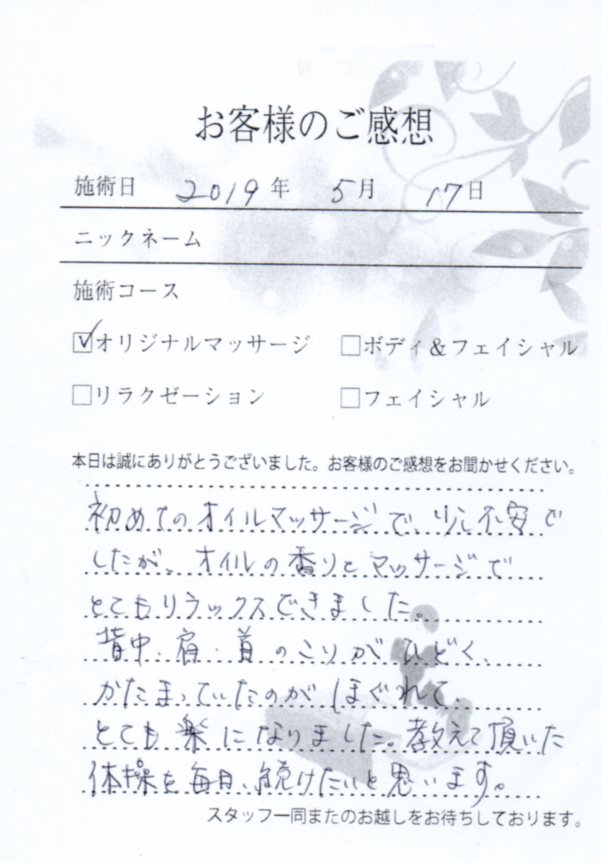 お客様のご感想
施術日 2019年 5月 17日
ニックネーム
施術コース
☑オリジナルマッサージ □ボディ&フェイシャル
□リラクゼーション □フェイシャル
本日は誠にありがとうございました。お客様のご感想をお聞かせください。
初めてのオイルマッサージで、少し不安で
したが、オイルの香りとマッサージで
とてもリラックスできました。
背中、肩、首のこりがひどく、
かたまっていたのがほぐれて、
とても楽になりました。教えて頂いた
体操を毎日、続けたいと思います。
スタッフ一同またのお越しをお待ちしております。